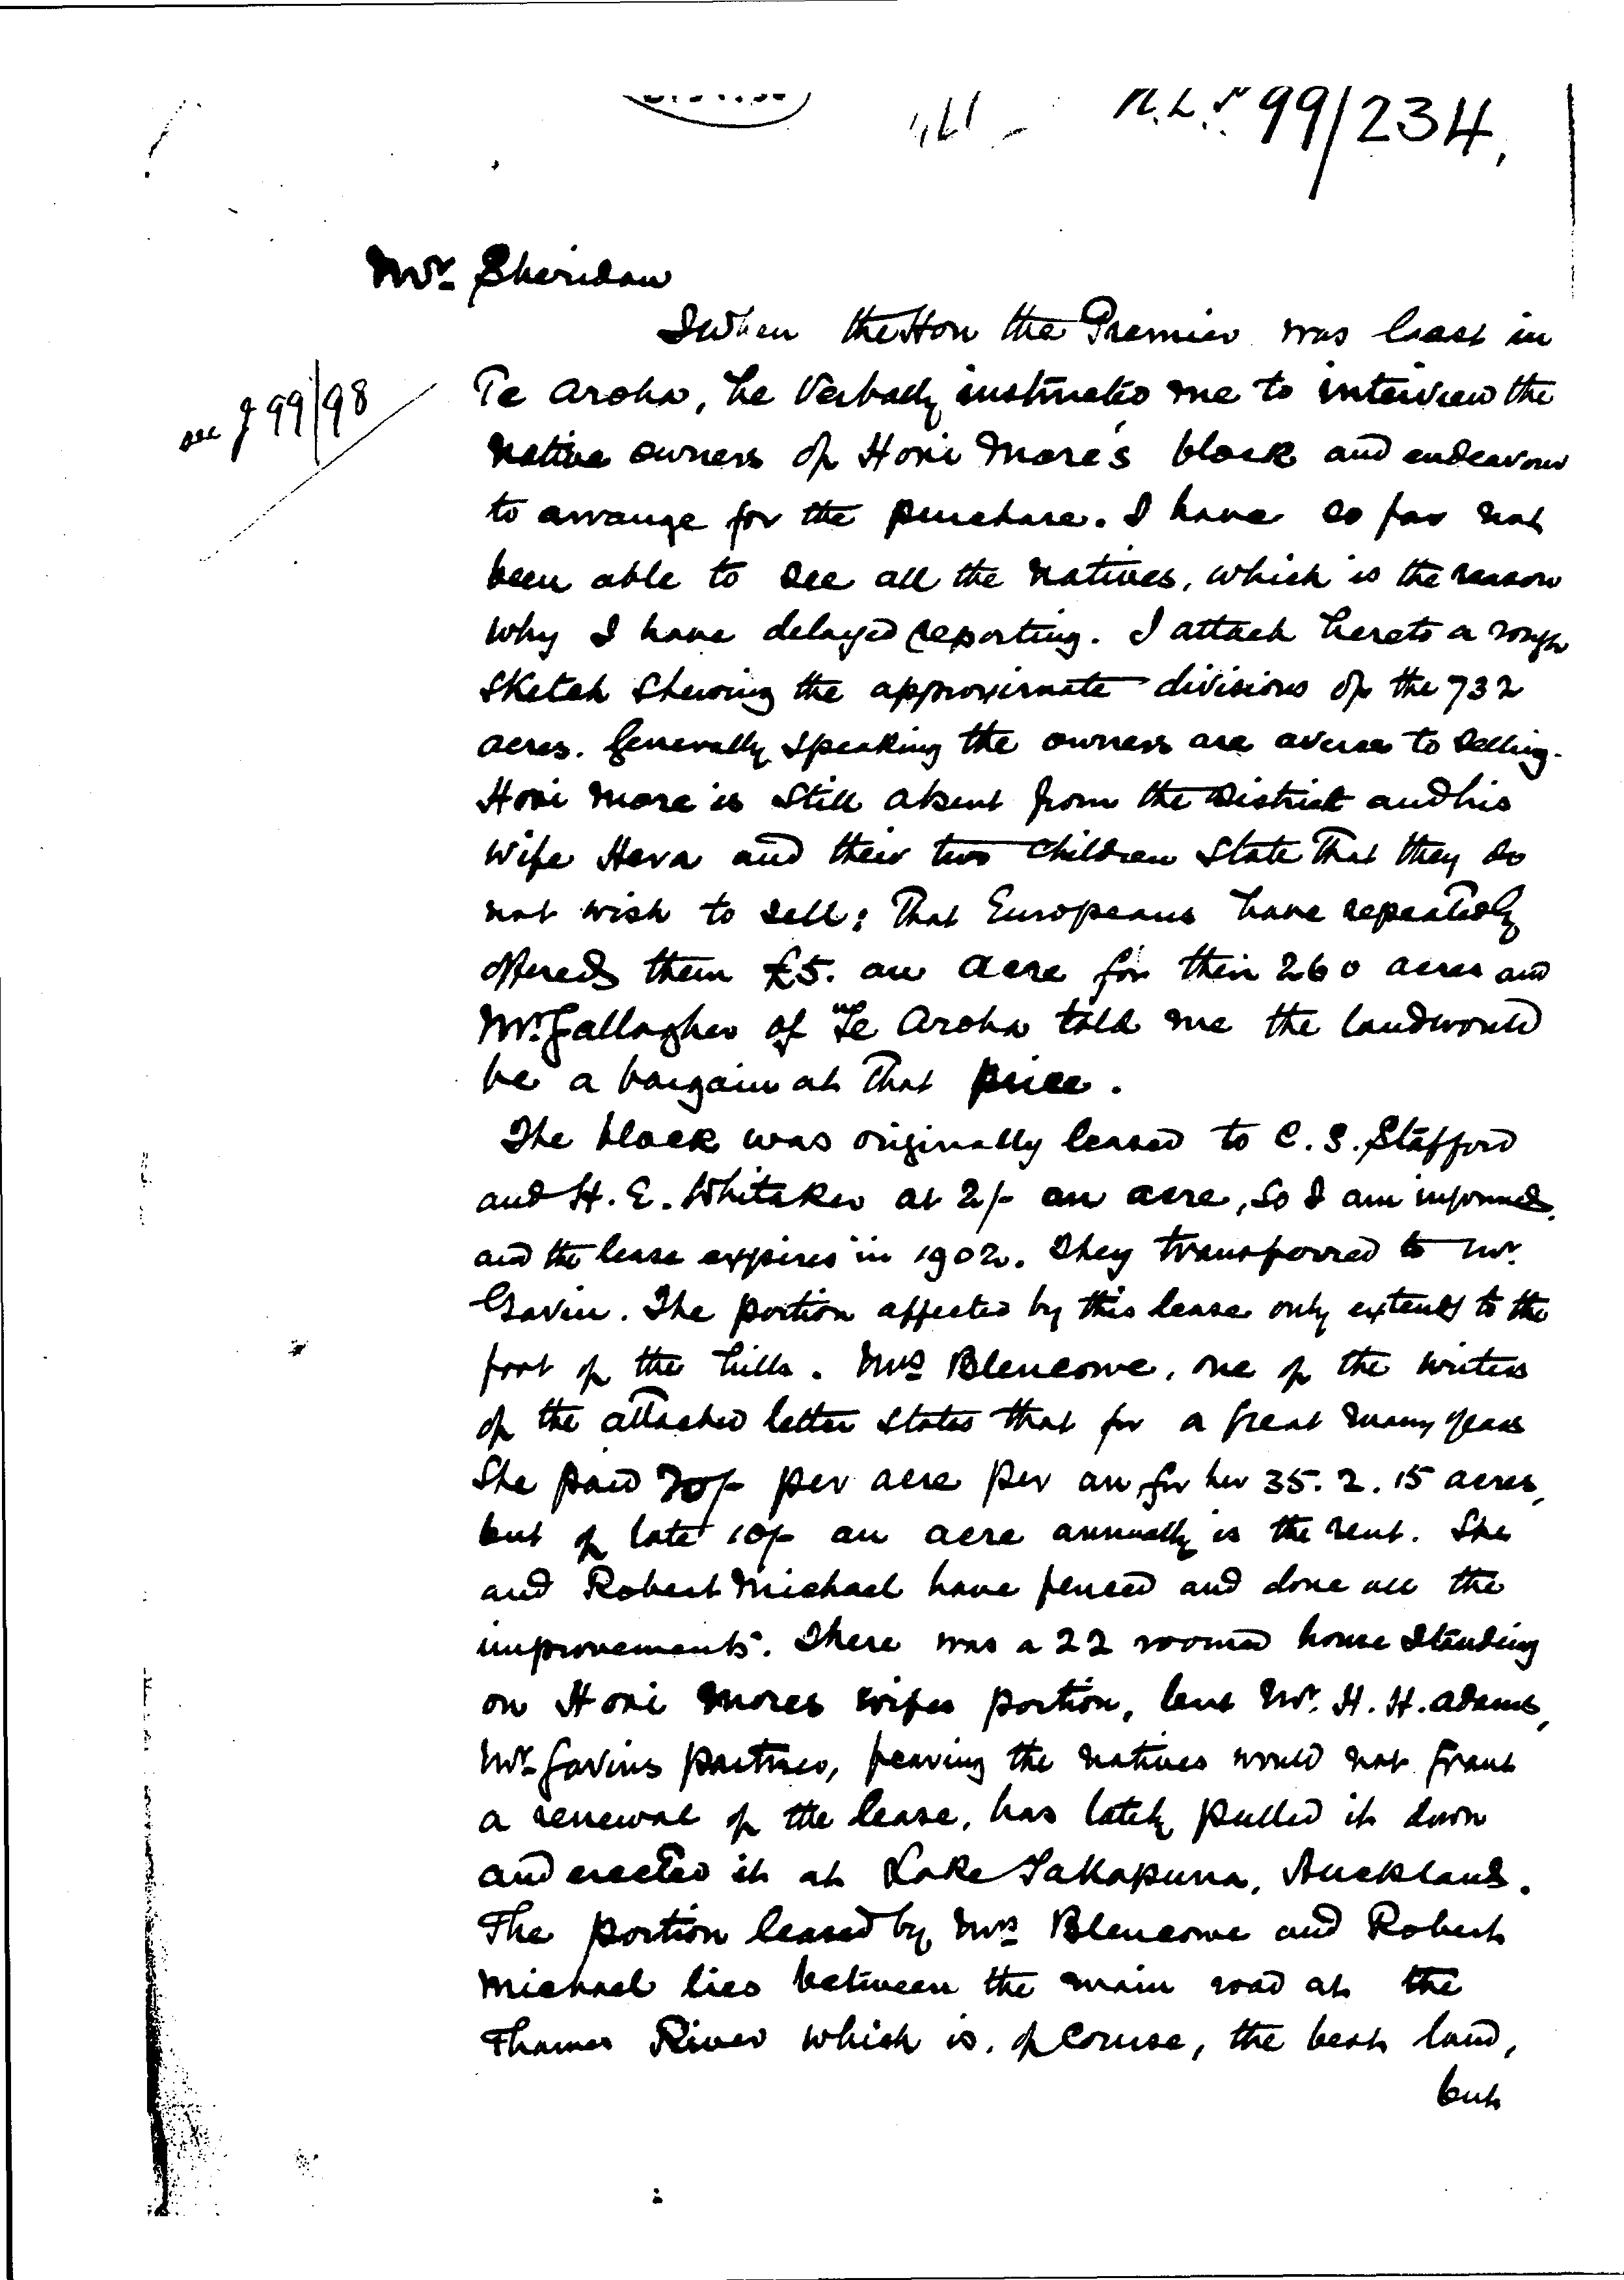 N.L.P. 99/234.
Mr. Sheridan
When the Hon the Premier was last in
see J 99/98
Te Aroha, he verbally instructed me to interview the
native owners of Hori More's block and endeavour
to arrange for the purchase. I have so far not
been able to see all the natives, which is the reason
why I have delayed reporting. I attach hereto a rough
sketch shewing the approximate divisions of the 732
acres. Generally speaking the owners are averse to selling.
Hori More is still absent from the District and his
wife Hera and their two children state that they do
not wish to sell: That Europeans have repeatedly
offered them £5. an acre for their 260 acres and
Mr. Gallagher of Te Aroha told me the land would
be a bargain at that price.
The block was originally leased to C. S. Stafford
and H. E. Whitaker at 2/- an acre, so I am informed,
and the lease expires in 1902. They transferred to Mr.
Gavin. The portion affected by this lease only extends to the
foot of the hills. Mrs Blencowe, one of the writers
of the attached letter states that for a great many years
She paid 20/- per acre per an for her 35. 2. 15 acres,
but of late 10/- an acre annually is the rent. She
and Robert Michael have fenced and done all the
improvements. There was a 22 roomed house standing
on Hori Mores wifes portion, but Mr. H. H. Adams,
Mr. Gavins partner, fearing the natives would not grant
a renewal of the lease, has lately pulled it down
and erected it at Lake Takapuna, Auckland.
The portion leased by Mrs Blencowe and Robert
Michael lies between the main road at the
Thames River which is, of course, the best land,
but